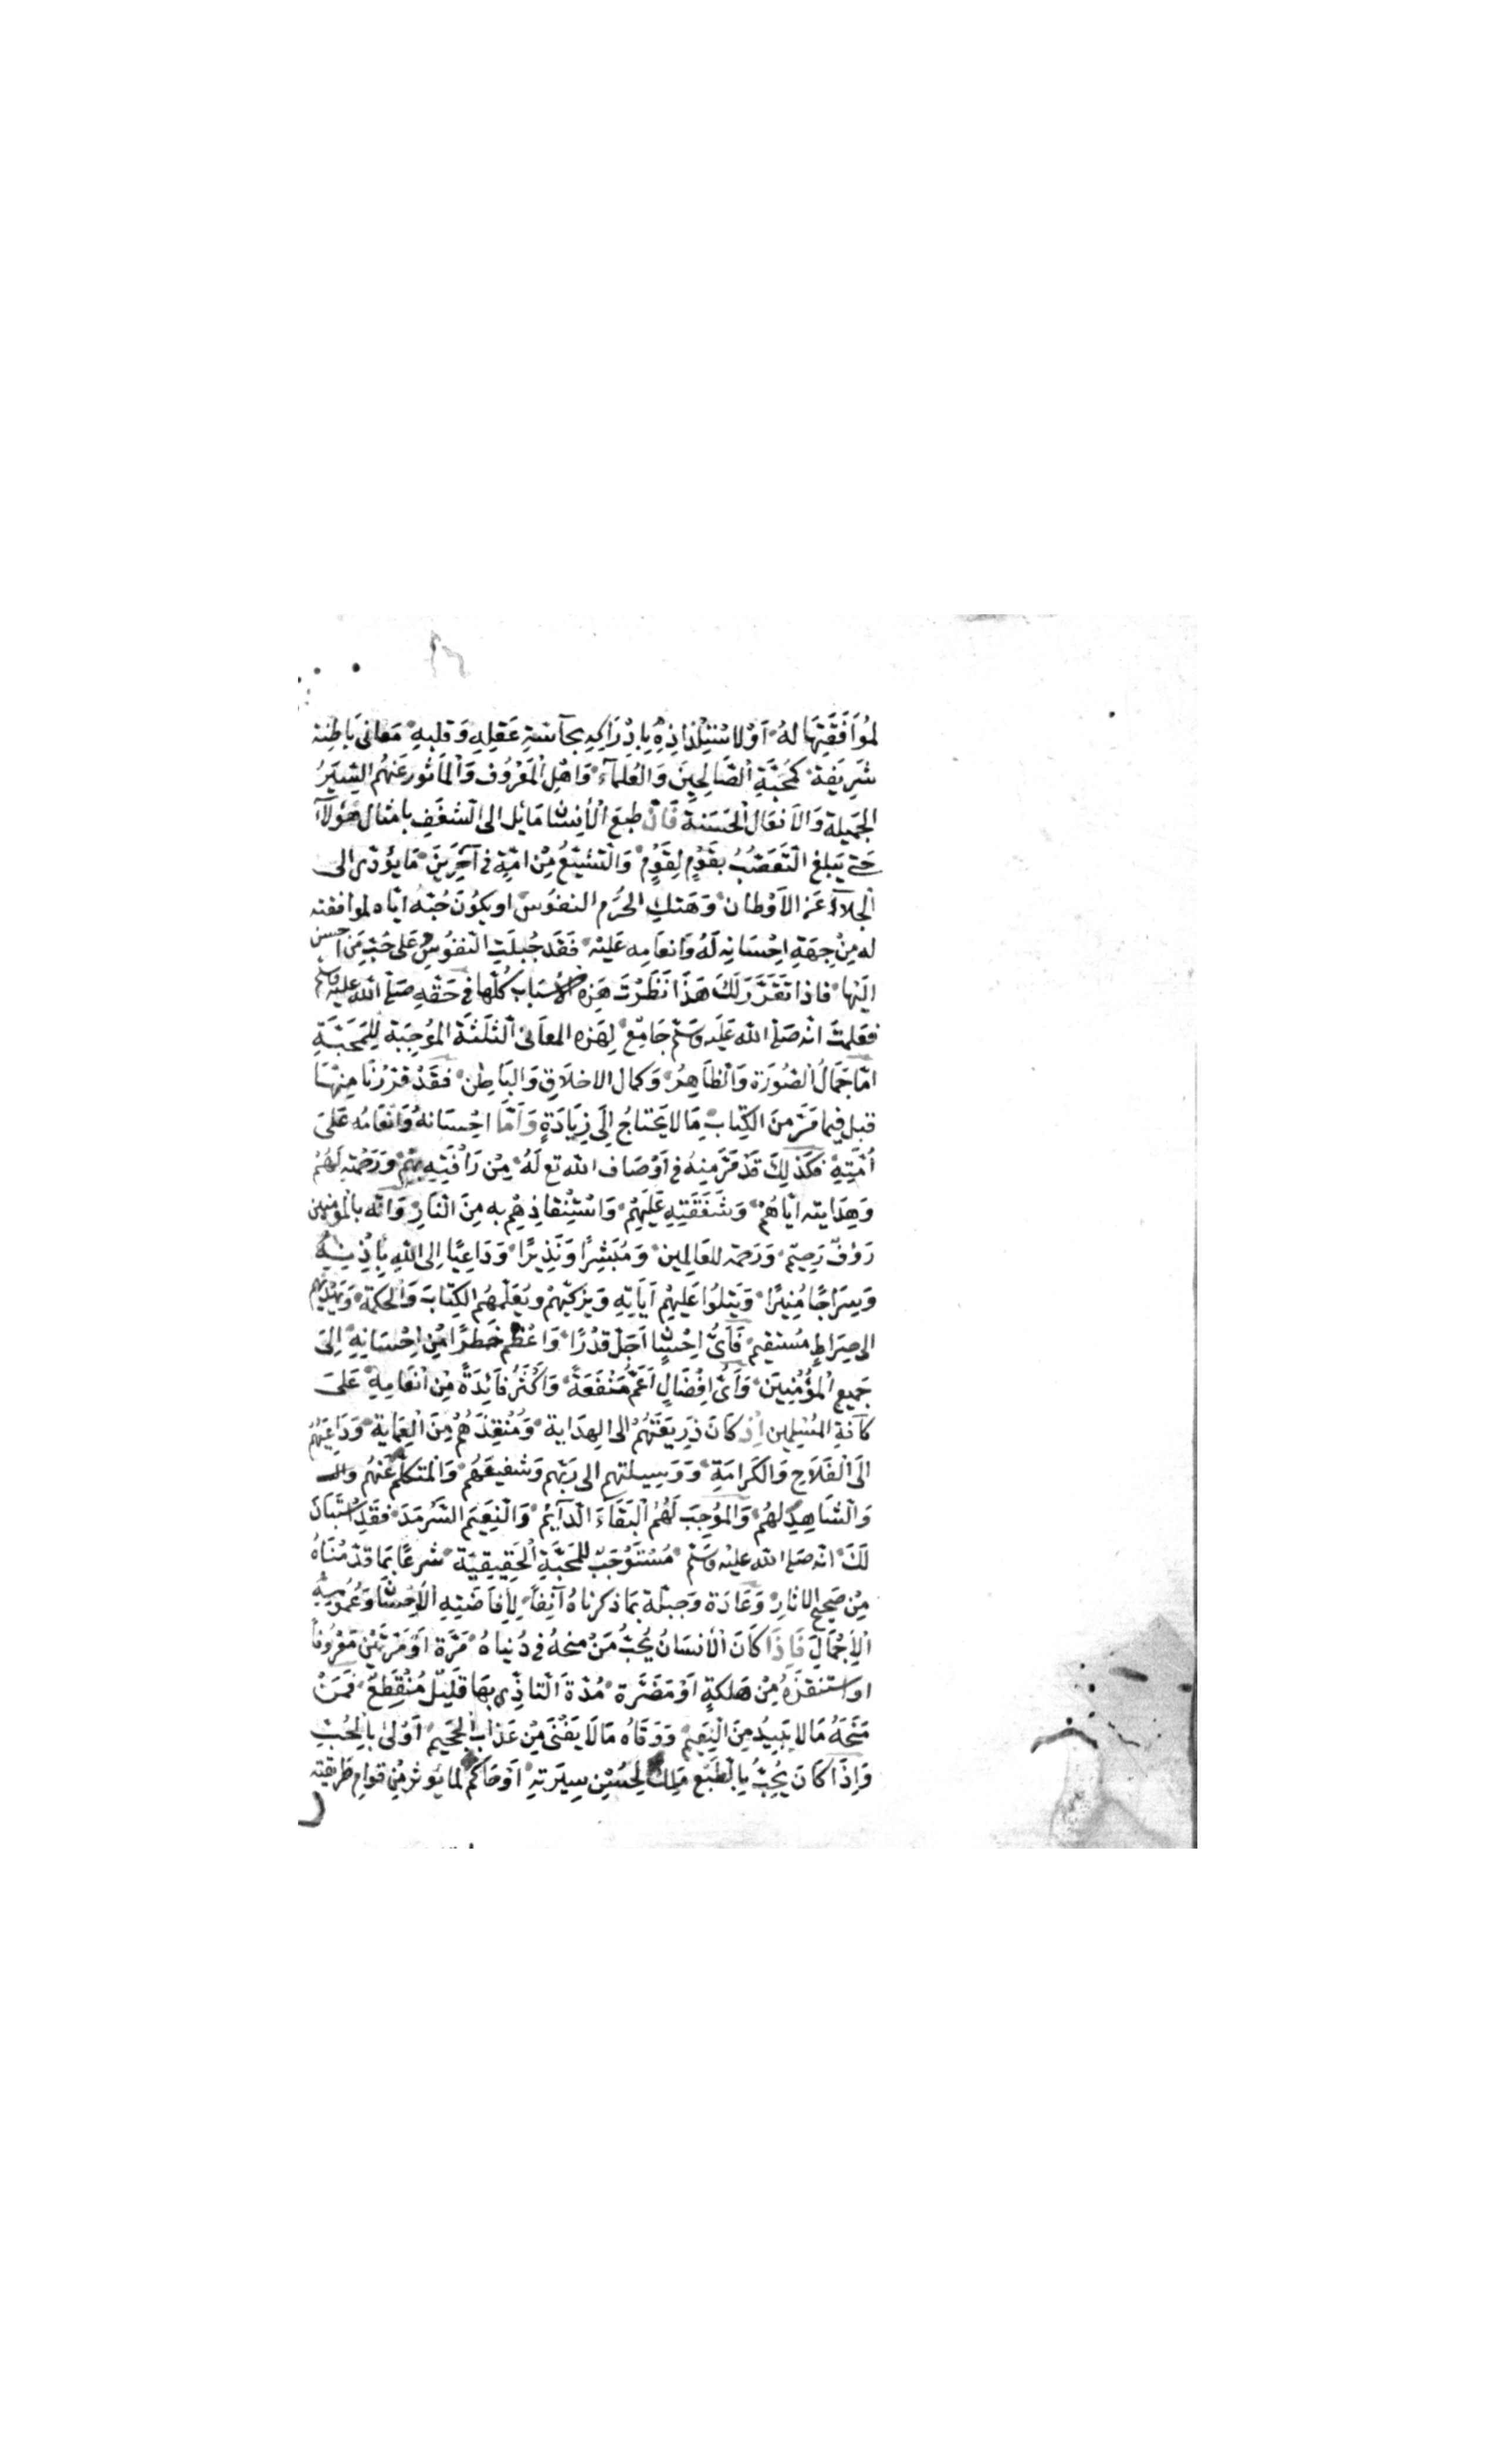 لمُوَافَقَتِهَا لَهُ اَوْ لاسْتِلْذَاذِهِ بِادْرَاكِهِ بِحَاسَّةِ عَقْلِهِ وَقَلْبِهِ مَعَانِىَ بَاطِنَة
شَرِيفَة كَمُحَبَّةِ الصَّالِحِينَ وَالْعُلَمَآءِ وَاَهْلِ الْمَعْرُوف وَالْمَاْثُور عَنْهُم السِّيَرُ
الجَمِيلَة وَالاَفْعَال الْحَسَنَة فَاِنَّ طبعَ الْاِنْسَان مَائِل الى الشَّغَفِ بامثال هَؤُلآءِ
حَتّى يَبلغ التَّعَصُّبُ بقَوْمٍ لِقَوْمٍ وَالتَّشَيُّعُ مِنْ امَّةٍ فى آخَرِينَ مَا يُؤَدّى الى
الْجلآءِ عَنِ الاَوْطَان وَهَتْكِ الحُرَم النفُوس او يكُونَ حُبّه ايّاه لموافقته
له مِنْ جِهَةِ اِحْسَانِه لَهُ وَانعَامِه عَلَيْه فَقَد جُبِلَتِ النّفُوسُ عَلى حُبّ مَنْ احسن
الَيْهَا فاذا تَقَرَّرَ لَكَ هَذَا نَظَرْتَ هَذِه الاَسْبَاب كُلّهَا فى حَقّهِ صَلى اللّه عَليْه وسلم
فعَلِمْتَ انّه صَلى اللّه عَلَيه وَسَلّم جَامِعٌ لِهَذِه المعَانى الثَّلَثَة المُوْجِبَة لِلمَحَبَّةِ
امّا جَمَالُ الصُّورَة وَالظّاهِرِ وَكمَال الاخلَاقِ وَالبَاطِن فَقَدْ قَرَّرْنَا مِنْهَا
قبل فيما مَرَّ مِنَ الكِتَاب مَا لا يَحتاجُ اِلَى زِيَادَةٍ وَاَمّا اِحْسَانهُ وَانْعَامُه عَلَى
اُمَّتِهِ فكَذَلِكَ قَدْ مَرَّ مِنهُ فى اَوْصَاف اللّه تع لَهُ مِنْ رَاْفَتِهِ بِهِمْ وَرَحْمَتِه لَهُمْ
وَهِدَايته ايّاهُمْ وَشَفَقَتِهِ عَلَيْهِمْ وَاسْتِنْقاذِهِمْ بِه مِنَ النَّارِ وَانّه بالْمُؤمنين
رَؤفٌ رَحِيمٌ وَرَحمَة للعَالِمين وَمُبَشِّرًا وَنَذِيرًا وَدَاعِيًا اِلى اللّهِ بِاِذْنِهِ
وَسِرَاجًا مُنِيرًا وَيَتلُوا عَلَيهِمْ آيَاتِهِ وَيزَكّيهِمْ ويُعَلّمهُم الكِتَابَ وَالْحكمَة وَيَهْديهم
الى صِرَاطٍ مُسْتقيم فَاَىُّ اِحْسَان اَجَلّ قَدْرًا وَاعْظَم خَطرًا مِنْ اِحْسَانِهِ اِلَى
جَمِيع الْمُؤْمِنِينَ وَاَىُّ اِفْضَالٍ اَعَمّ مَنْفَعَةً وَاَكْثَرُ فَائِدَةً مِنْ انْعَامِهِ عَلَى
كآفّةِ المُسْلِمِين اِذْ كَانَ ذَرِيعَتَهُمْ الى الهِدَاية وَمُنْقِذَهُمْ مِنَ الْعِمَاية وَدَاعِيَهُمْ
الَى الْفَلَاح وَالكَرامَةِ وَوَسِيلتهم الى رَبّهم وَشَفيعَهُم وَالْمُتكلّم عَنْهُم
وَالشّاهِدَ لهُمْ وَالمُوجِبَ لَهُمُ الْبَقَاءَ الدّآيِم وَالنّعِيَم السّرْمَدَ فَقَدِ اسْتَبَانَ
لَكَ انّه صَلى اللّه عَليْه وَسَلّم مُسْتَوْجِبٌ للمَحَبَّةِ الْحَقِيقِيَّة شرعًا بمَا قدّمْنَاهُ
مِنْ صَحِيح الاثارِ وَعَادَة وَجِبلّة بمَا ذكرناهُ آنِفاً لِاِفَاضَتِهِ الْاِحْسَان وَعُمُومِهِ
الْاِجْمَالَ فَاِذَا كَانَ الْاِنسَانُ يُحِبُّ مَنْ منحهُ فى دُنيَاهُ مَرَّة اَوْ مَرّتَيْن مَعْرُوفًا
او استنقذَهُ مِنْ هَلكةٍ اَوْ مَضَرَّة مُدّة التاذِّى بهَا قَلِيْل مُنْقَطِعٌ فَمَنْ
مَنَحَهُ مَا لا يَبِيدُ مِنَ النّعِيم وَوَقَاهُ مَا لَا يَفْنَى مِنْ عَذَابِ الْجَحِيم اَوْلى بالْحُبّ
وَاِذَا كانَ يُحِبُّ بِالطَّبْعِ مَلِكٌ لِحُسْنِ سِيرَتِهِ اَوْ حَاكمٌ لما يُوثر مِنْ قوامِ طَريقته